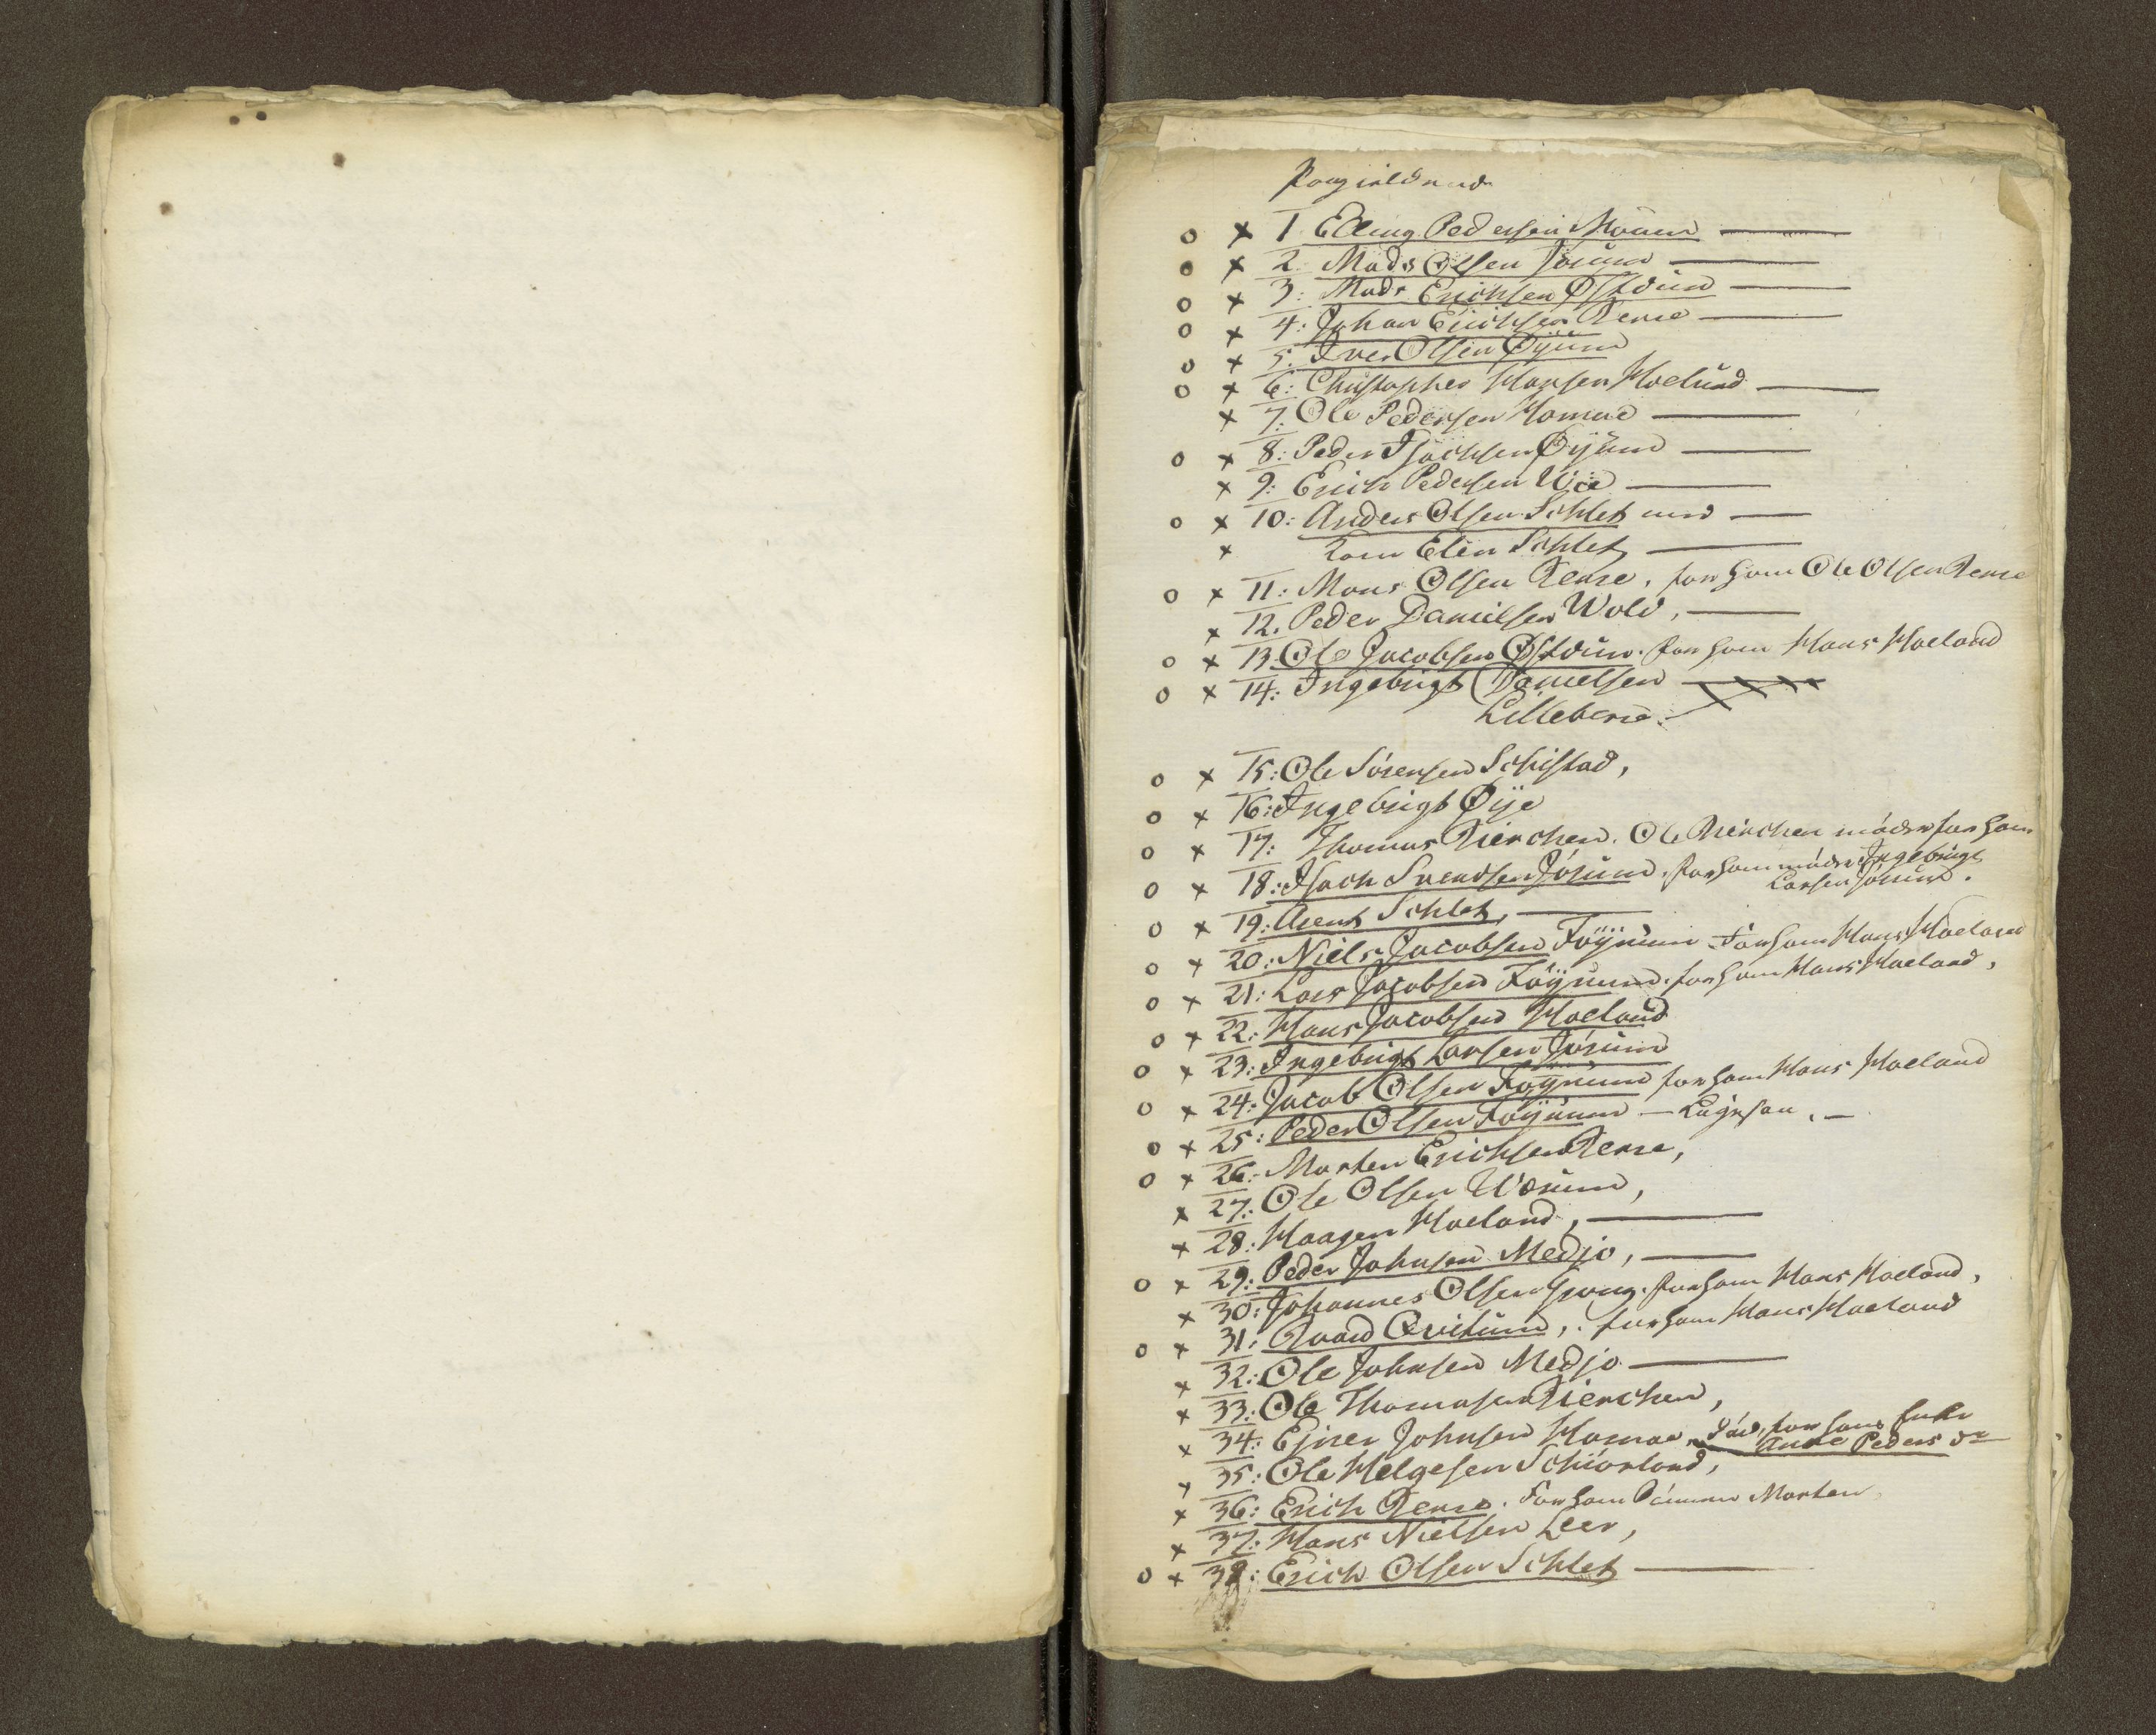 o x 1 Elling Pedersen Moum
o x 2. Mads Olsen Jörum
o x 3: Mads Erichsen Østvün
o x 4: Johan Erichsen Reme
o x 5. Iver Olsen Øyüm
o x 6: Christopher Hansen Haelund
x 7: Ole Pedersen Homme
o x 8: Peder Isachsen Øyüm
x 9: Erich Pedersen
o x 10: Anders Olsen Schlet
x Elen Schlet
o x 11: Mons Olsen Reme. for ham Ole Olsen Reme
x 12. Peder Danielsen Wold,
o x 13. Ole Jacobsen Østvün. for ham Hans Haeland
o x 14: Ingebrigt Danielsen
Lilleberre
o x 15: Ole Sörensen Schistad,
o x 16: Ingebrigt Øye
o x 17: Thomas Rierchen. Ole Rierchen möder for ham
o x 18: Isach Svendsen Jörum. for ham möder Ingebrigt
Larsen Jörum.
o x 19: Arent Schlet,
o x 20: Niels Jacobsen Föynum. for ham Hans Haeland
o x 21: Lars Jacobsen Föynum. for ham Hans Haeland,
o x 22: Hans Jacobsen Haeland
o x 23: Ingebrigt Larsen Jörum
o x 24: Jacob Olsen Föynum for ham Hans Haeland
o x 25: Peder Olsen Föynum
o x 26: Morten Erichsen Reme,
x 27: Ole Olsen
x 28: Haagen Haeland,
o x 29: Peder Johnsen Medjo,
x 30: Johannes Olsen Grong. for ham Hans Haeland,
o x 31: Qvitüm, for ham Hans Haeland
x 32: Ole Johnsen Medjo
x 33: Ole Thomasen Rierchen,
x 34: Ejner Johnsen Homoe, död, for ham
Anne Peders dr
x 35: Ole Helgesen Schiörland,
x 36: Erich Reme. for ham Sönnen Morten
x 37: Hans Nielsen Leer,
o x 38: Erich Olsen Schlet